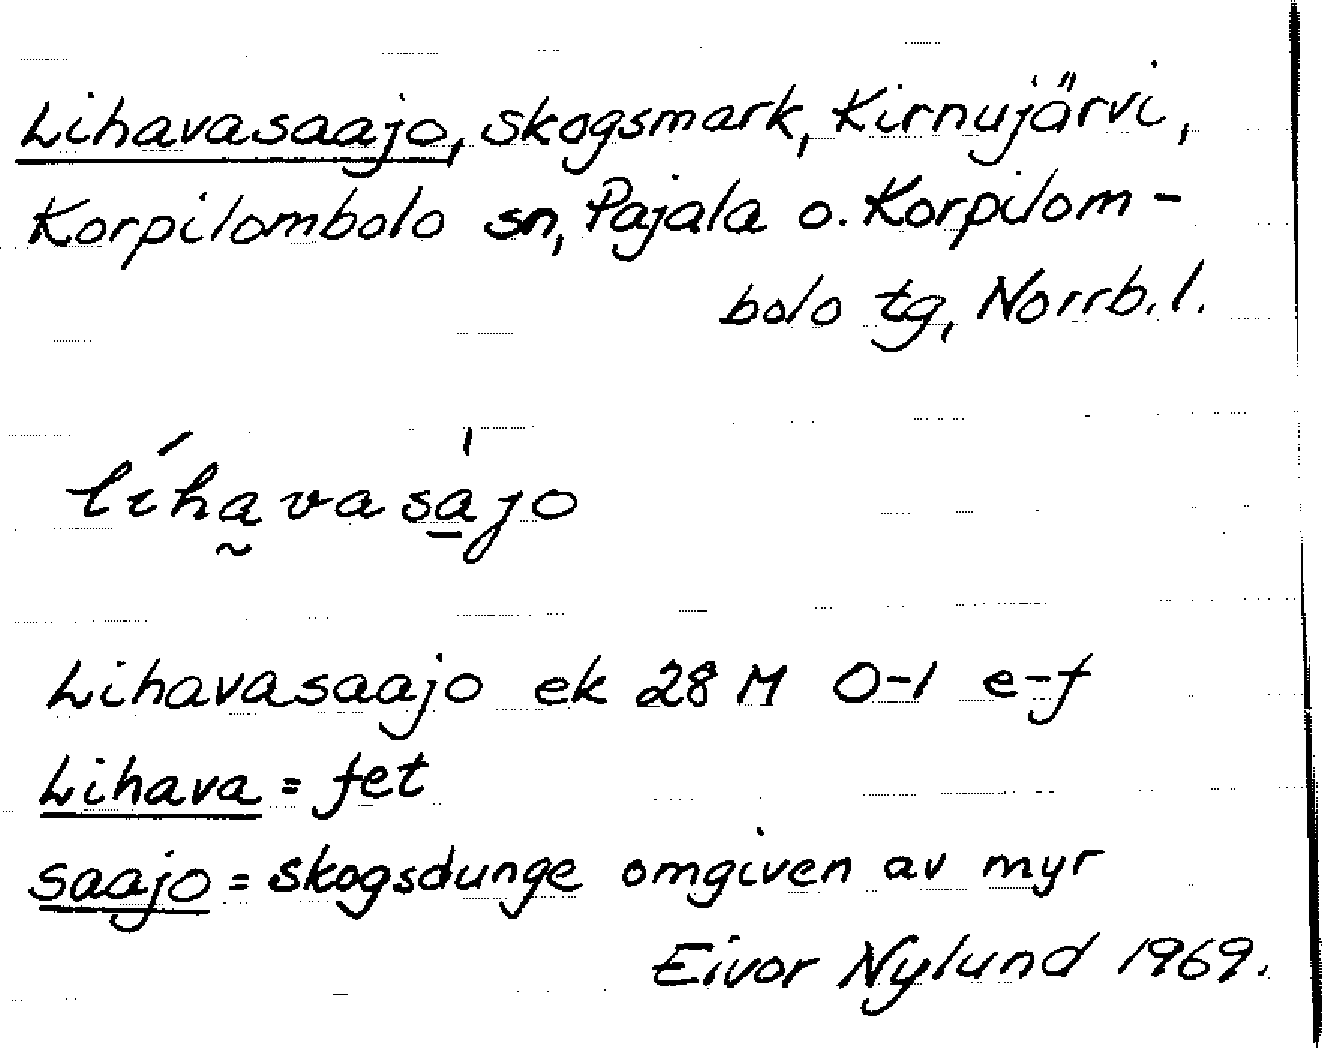 Lihavasaajo, skogsmark, Kirnujärvi,
Korpilombolo sn, Pajala o. Korpilom-
bolo tg, Norrb.l.
líha̰vasa̱̍jo
Lihavasaajo ek 28 M 0-1 e-f
Lihava = fet
saajo = skogsdunge omgiven av myr
Eivor Nylund 1969.